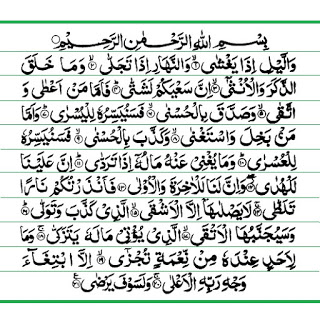 بِسْمِ اللهِ الرَّحْمٰنِ الرَّحِيْمِ
وَالَّيْلِ اِذَا يَغْشٰى ۙ۱ وَالنَّهَارِ اِذَا تَجَلّٰى ۙ۲ وَمَا خَلَقَ
الذَّكَرَ وَالْاُنْثٰۤى ۙ۳ اِنَّ سَعْيَكُمْ لَشَتّٰى ؕ۴ فَاَمَّا مَنْ اَعْطٰى وَ
اتَّقٰى ۙ۵ وَصَدَّقَ بِالْحُسْنٰى ۙ۶ فَسَنُيَسِّرُهٗ لِلْيُسْرٰى ؕ۷ وَاَمَّا
مَنْۢ بَخِلَ وَاسْتَغْنٰى ۙ۸ وَكَذَّبَ بِالْحُسْنٰى ۙ۹ فَسَنُيَسِّرُهٗ
لِلْعُسْرٰى ؕ۱۰ وَمَا يُغْنِيْ عَنْهُ مَالُهٗۤ اِذَا تَرَدّٰى ؕ۱۱ اِنَّ عَلَيْنَا
لَلْهُدٰى ۖ۱۲ وَاِنَّ لَنَا لَلْاٰخِرَةَ وَالْاُوْلٰى ۱۳ فَاَنْذَرْتُكُمْ نَارًا
تَلَظّٰى ۚ۱۴ لَا يَصْلٰىهَاۤ اِلَّا الْاَشْقَى ۙ۱۵ الَّذِيْ كَذَّبَ وَتَوَلّٰى ؕ۱۶
وَسَيُجَنَّبُهَا الْاَتْقَى ۙ۱۷ الَّذِيْ يُؤْتِيْ مَالَهٗ يَتَزَكّٰى ۚ۱۸ وَمَا
لِاَحَدٍ عِنْدَهٗ مِنْ نِّعْمَةٍ تُجْزٰۤى ۙ۱۹ اِلَّا ابْتِغَآءَ
وَجْهِ رَبِّهِ الْاَعْلٰى ۚ۲۰ وَلَسَوْفَ يَرْضٰى ۲۱